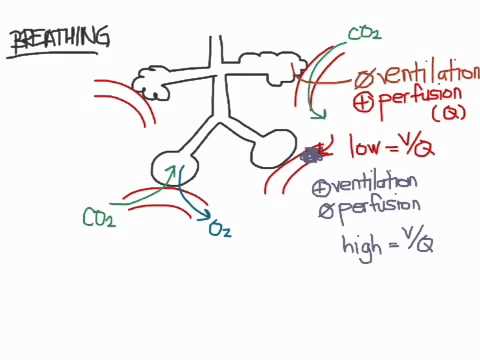 BREATHING
CO2
Øventilation
⊕perfusion
(Q)
low = V/Q
⊕ventilation
Øperfusion
high = V/Q
CO2
O2